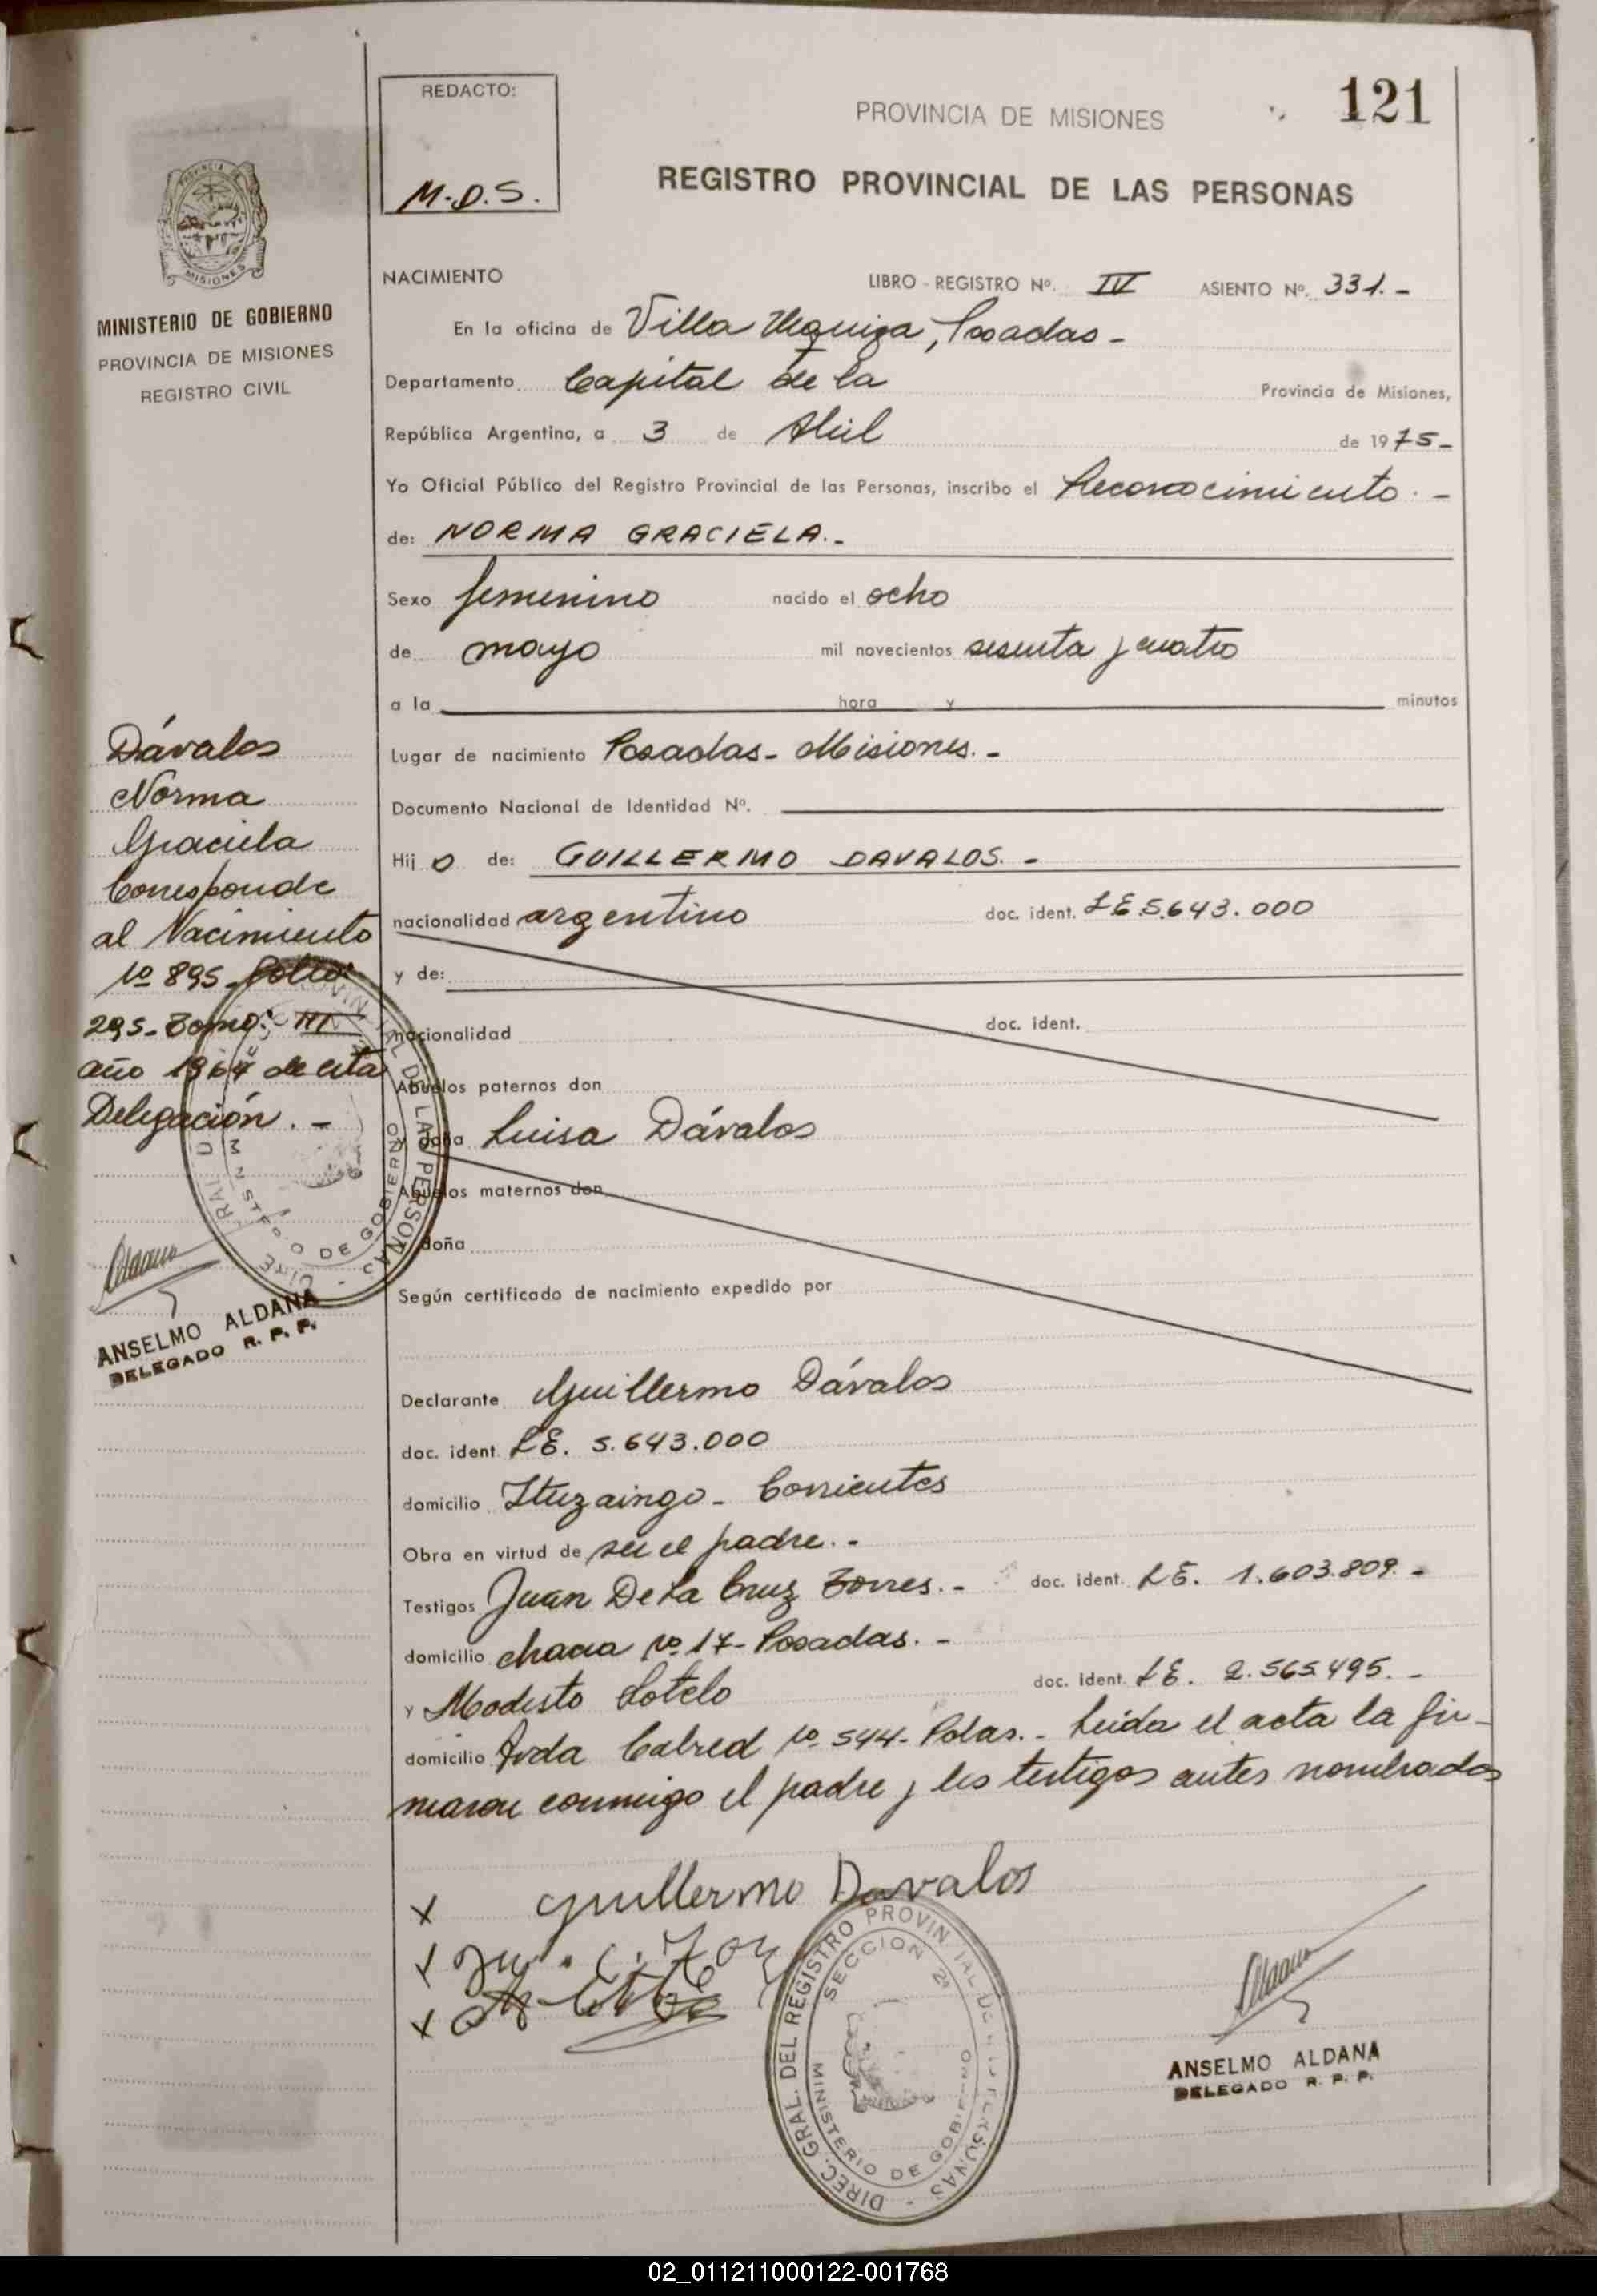 REDACTO:
M.D.S.
PROVINCIA DE MISIONES
121
REGISTRO PROVINCIAL DE LAS PERSONAS
MISIONES
MINISTERIO DE GOBIERNO
PROVINCIA DE MISIONES
REGISTRO CIVIL
NACIMIENTO
LIBRO - REGISTRO Nº. IV ASIENTO Nº. 331.-
En la oficina de Villa Urquiza, Posadas-
Departamento Capital de la Provincia de Misiones,
República Argentina, a 3 de Abril de 1975-
Yo Oficial Público del Registro Provincial de las Personas, inscribo el Reconocimiento.-
de: NORMA GRACIELA.-
Sexo femenino nacido el ocho
de mayo mil novecientos sesenta y cuatro
a la hora y minutos
Lugar de nacimiento Posadas- Misiones.-
Documento Nacional de Identidad Nº.
Hij o de: GUILLERMO DAVALOS.-
nacionalidad argentino doc. ident. LE 5.643.000
y de:
nacionalidad doc. ident.
Abuelos paternos don
y doña Luisa Dávalos
Abuelos maternos don
doña
Según certificado de nacimiento expedido por
Declarante Guillermo Dávalos
doc. ident. LE. 5.643.000
domicilio Ituzaingo- Corrientes
Obra en virtud de ser el padre.-
Testigos Juan De La Cruz Torres.- doc. ident. LE. 1.603.809.-
domicilio chacra Nº 17- Posadas.-
y Modesto Sotelo doc. ident. LE. 2.565.495.-
domicilio Avda Cabred Nº 544- Pdas.- Leida el acta la fir-
maron conmigo el padre y los testigos antes nombrados
Dávalos
Norma
Graciela
Corresponde
al Nacimiento
Nº 895- folio:
295- Tomo: III
año 1964 de esta
Delegación.-
ANSELMO ALDANA
DELEGADO R. P. P.
x Guillermo Davalos
x
x
DIREC. GRAL. DEL REGISTRO PROVINCIAL DE LAS PERSONAS -
SECCION 2ª
MINISTERIO DE GOBIERNO
ANSELMO ALDANA
DELEGADO R. P. P.
02_011211000122-001768